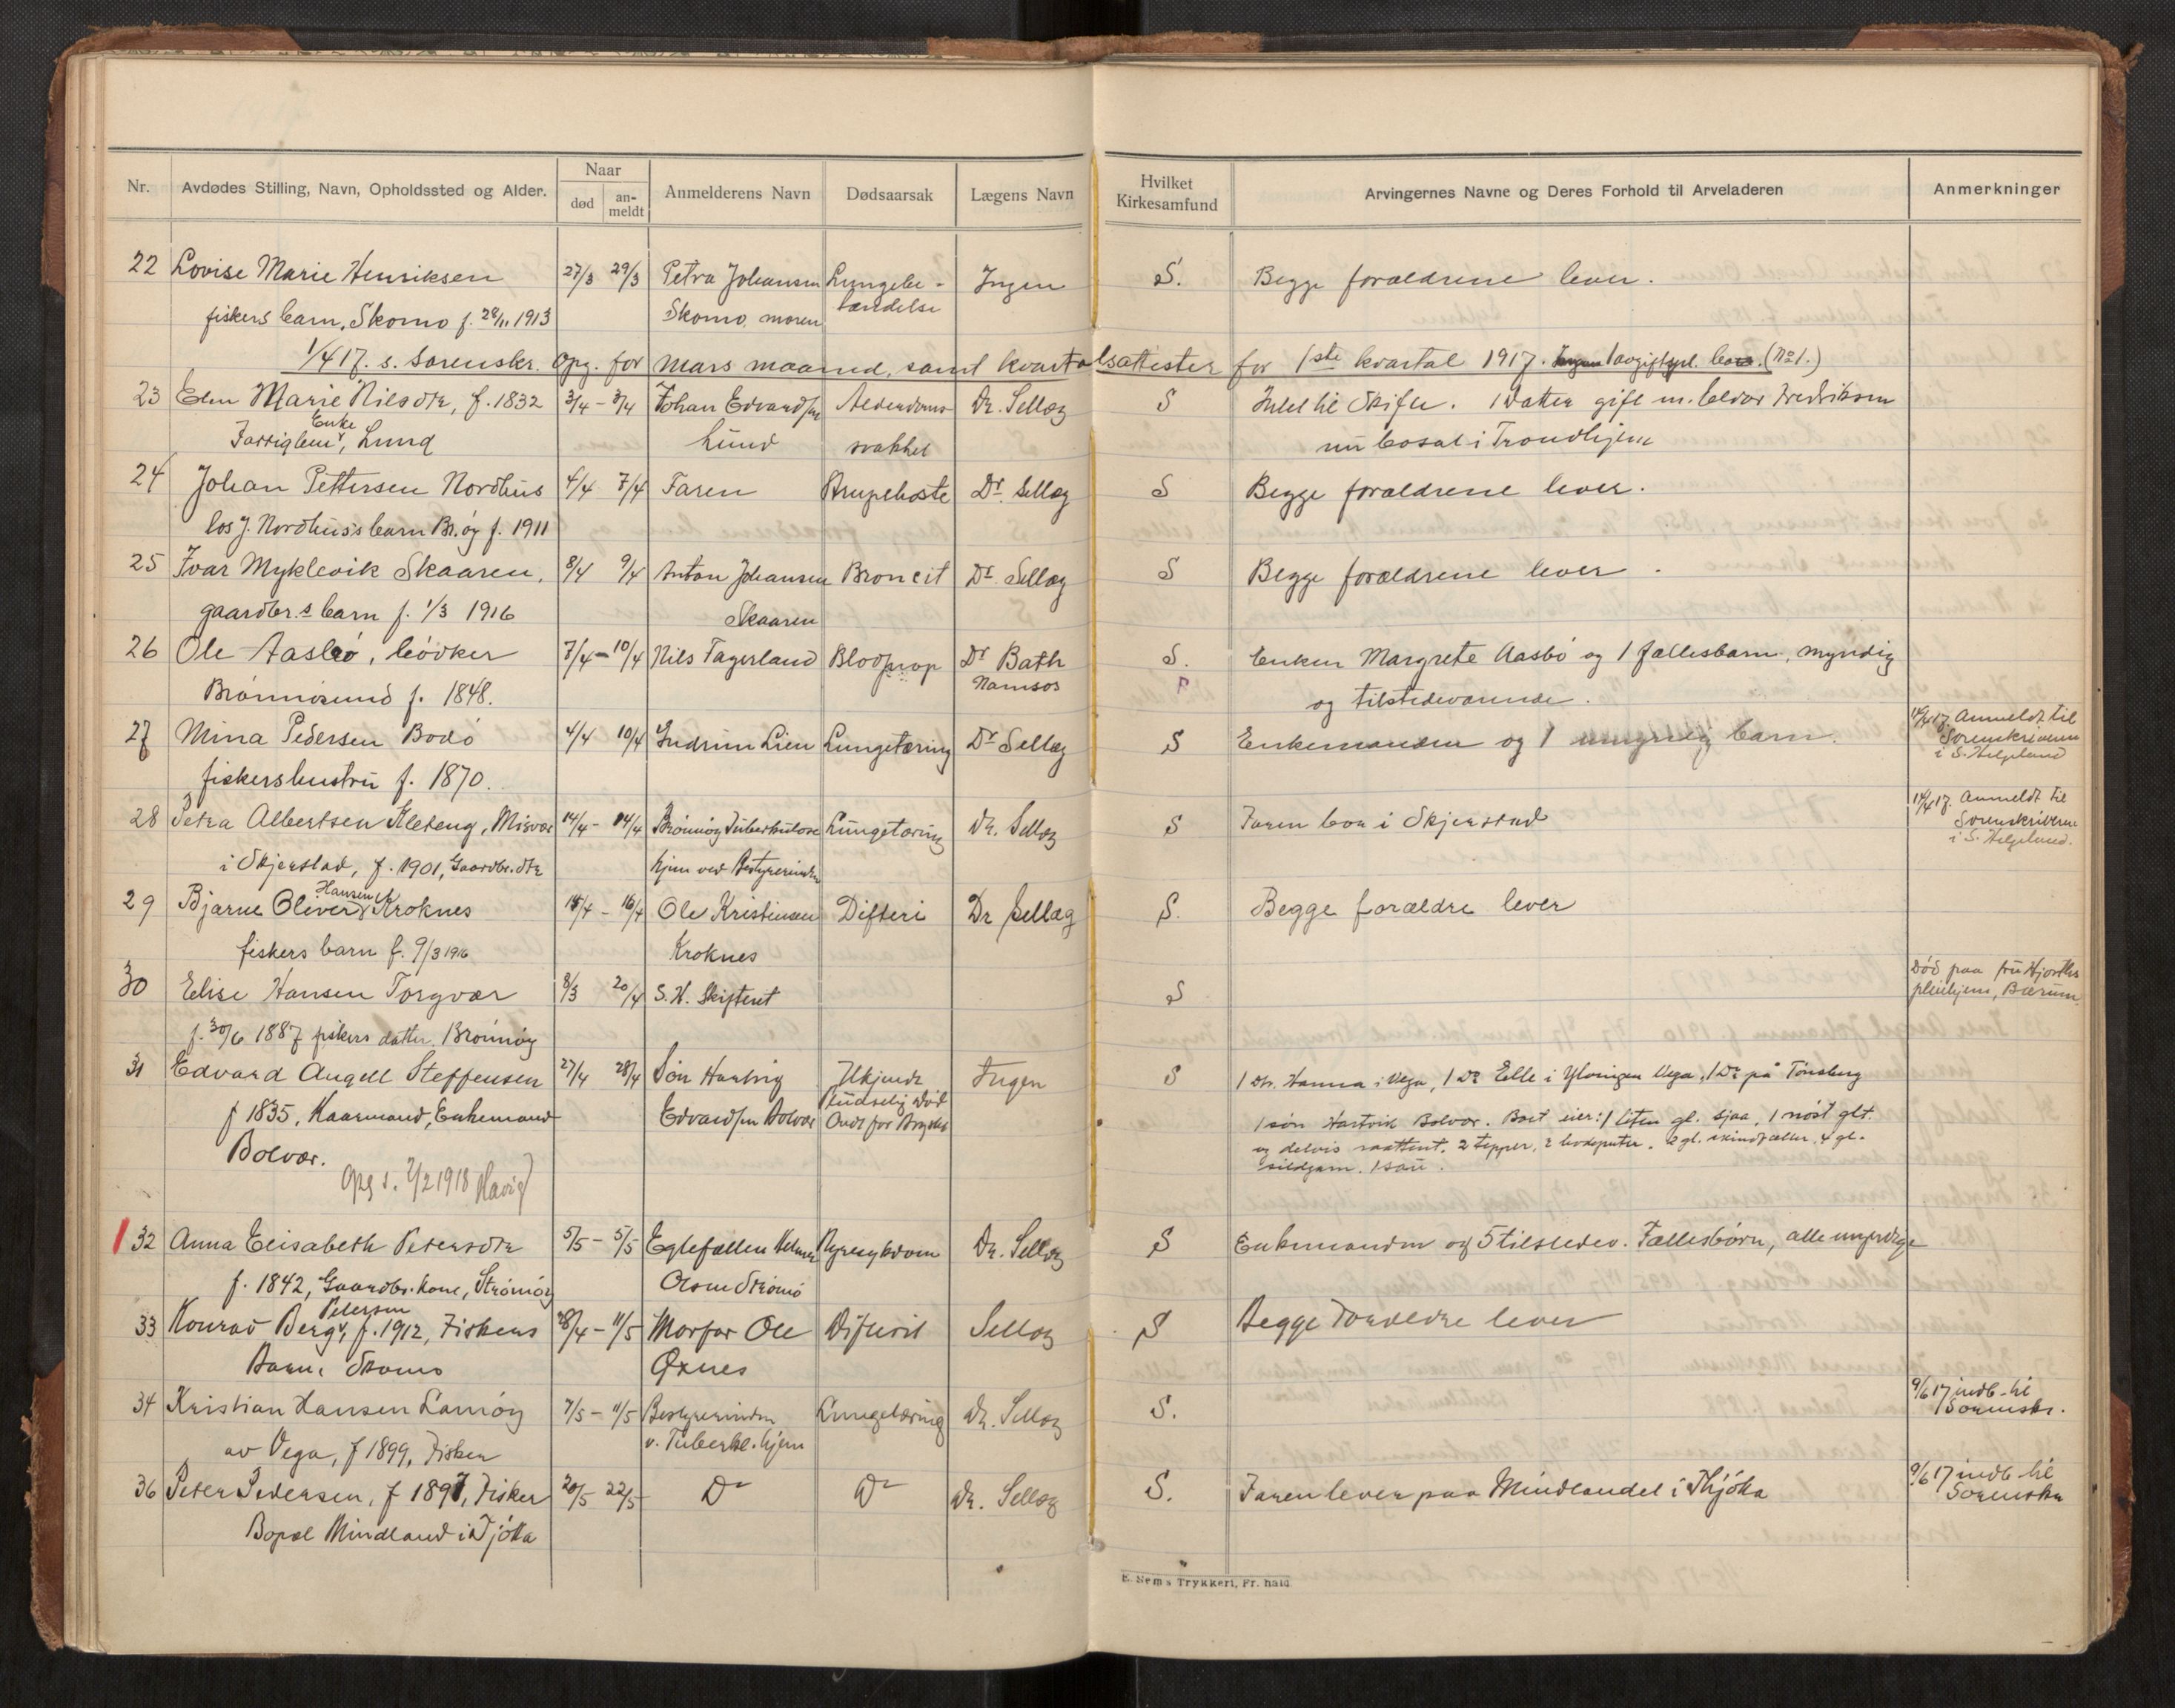 Nr. Avdødes Stilling, Navn, Opholdssted og Alder. Naar død an-meldt Anmelderens Navn Dødsaarsak Lægens Navn Hvilket Kirkesamfund Arvingernes Navne og Deres Forhold til Arveladeren Anmerkninger
22 Lovise Marie Henriksen 27/3 29/3 Petra Johansen Lungebe- Ingen S. Begge forældrene lever.
fiskers barn, Skomo f. 28/11 1913 Skomo, moren tændelse
1/4 17. s. Sorenskr. Opg. for Mars maaned, samt kvartalsattester for 1ste kvartal 1917. 1 avgiftspl. (No 1.)
23 Elen Marie Nilsdtr, f. 1832 3/4 - 3/4 Johan Edvardsen Alderdoms Dr. Sellæg S Intet til Skifte. 1 Datter gift m. Fredriksen
Enke
Fattiglem, Lund Lund svakhet nu bosat i Trondhjem
24 Johan Pettersen Nordhus 6/4 7/4 Faren Strupehoste Dr. Sellæg S Begge forældrene lever.
los J. Nordhus's barn Br.øy f. 1911
25 Ivar Myklevik Skaaren, 8/4 9/4 Anton Johansen Broncit Dr. Sellæg S Begge forældrene lever.
gaardbr.s barn f. 1/3 1916 Skaaren
26 Ole Aasbø, bødker 7/4 - 10/4 Nils Fagerland Blodprop Dr Bath S. Enken Margrete Aasbø og 1 fællesbarn, myndig
Brønnøsund f. 1848. Namsos og tilstedeværende.
27 Mina Pedersen Bodø 4/4 10/4 Gudrun Lien Lungetæring Dr Sellæg S Enkemanden og 1 umyndig barn. 14/4 17. Anmeldt til
Sorenskriveren
i S. Helgeland
fiskershustru f. 1870.
28 Petra Albertsen Kleteng, Misvær 14/4 - 14/4 Brønnøy Tuberkulose Lungetæring Dr. Sellæg S Faren bor i Skjerstad 14/4 17. Anmeldt til
Sorenskriveren
i S. Helgeland.
i Skjerstad, f. 1901, Gaardbr. dtr hjem ved Bestyrerinden
29 Bjarne Oliver Hansen Kroknes 15/4 - 16/4 Ole Kristiansen Difteri Dr Sellæg S. Begge forældre lever
fiskers barn f. 9/3 1916 Kroknes
30 Elise Hansen Torgvær 8/3 20/4 S. H. Skifteret S Død paa fru Hjorths
pleiehjem, Bærum
f. 30/6 1887 fiskers datter. Brønnøy
31 Edvard Angell Steffensen 27/4 28/4 Søn Hartvig Ukjendt Ingen S 1 Dtr. Hanna i Vega, 1 Do Elle i Ylvingen Vega, 1 Do på Tønsberg
f 1835, Kaarmand, Enkemand Edvardsen Bolvær Pludselig død 1 søn Hartvik Bolvær. Boet eier: 1 liten gl. sjaa, 1 nøst glt.
Ondt for Brystet og delvis raattent. 2 tepper, 2 hodeputer. 2 gl. skindfæller, 4 gl.
Bolvær. sildgarn. 1 sau.
Opg s. 7/2 1918
32 Anna Elisabeth Petersdtr 5/5 - 5/5 Egtefællen Helmer Nyresykdom Dr. Sellæg S Enkemanden og 5 tilstedev. Fællesbørn, alle myndige
f. 1842, Gaardbr. kone, Strømøy Olsen Strømø
33 Konrad Berg Petersen, f. 1912, Fiskers 28/4 - 11/5 Morfar Ole Difterit Sellæg S Begge Foreldre lever
Barn, Skomo Øxnes
34 Kristian Hansen Lamøy 7/5 - 11/5 Bestyrerinden Lungetæring Dr. Sellæg S. 9/6 17 indb. til
Sorenskr.
av Vega, f 1899, Fisker v. Tuberkl. hjem
36 Peter Pedersen, f 1897, Fisker 20/5 22/5 Do Do Dr. Sellæg S. Faren lever paa Mindlandet i Thjøtta 9/6 17 indb. til
Sorenskr
Bopæl Mindland i Tjøtta
E. Sem's Trykkeri, Fr. hald.